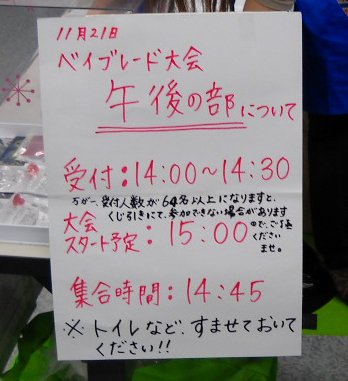 11月21日
ベイブレード大会
午後の部について
受付:14:00～14:30
万が一、受付人数が64名以上になりますと、
くじ引きにて、参加できない場合があります
ので、ご了承
ください
ませ。
大会
スタート予定:15:00
集合時間:14:45
※トイレなど、すませておいて
ください!!